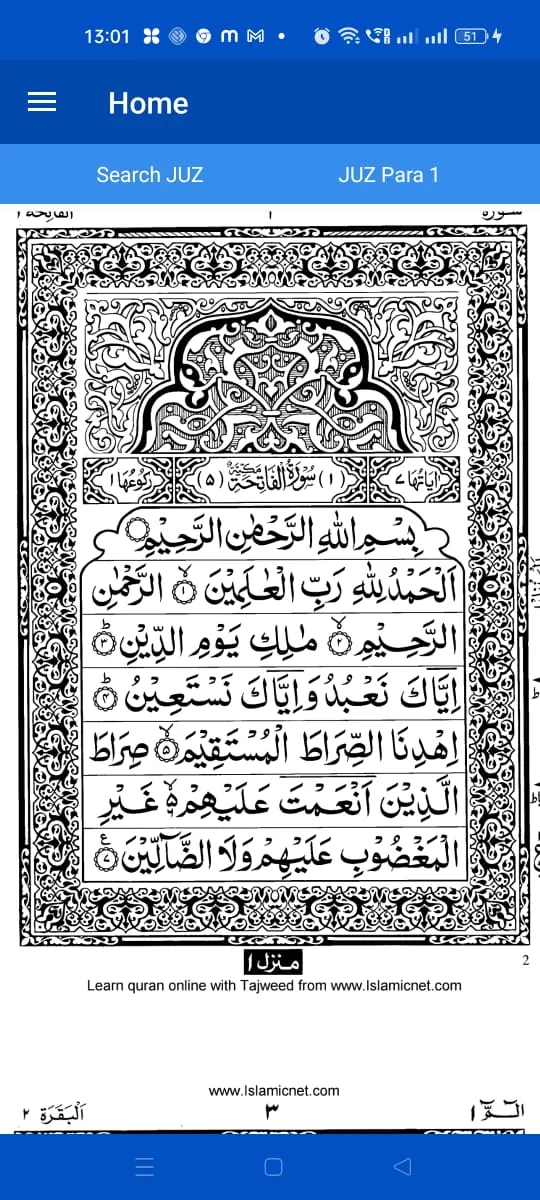 13:01 51
Home
Search JUZ JUZ Para 1
سورة ١ الفاتحة ١
اٰيَاتُهَا ٧ (١) سُوْرَةُ الْفَاتِحَةِ مَكِّيَّةٌ (٥) رُكُوْعُهَا ١
بِسْمِ اللهِ الرَّحْمٰنِ الرَّحِيْمِ
اَلْحَمْدُ لِلّٰهِ رَبِّ الْعٰلَمِيْنَ ۙ﴿١﴾ الرَّحْمٰنِ
الرَّحِيْمِ ۙ﴿٢﴾ مٰلِكِ يَوْمِ الدِّيْنِ ؕ﴿٣﴾
اِيَّاكَ نَعْبُدُ وَاِيَّاكَ نَسْتَعِيْنُ ؕ﴿٤﴾
اِهْدِنَا الصِّرَاطَ الْمُسْتَقِيْمَ ۙ﴿٥﴾ صِرَاطَ
الَّذِيْنَ اَنْعَمْتَ عَلَيْهِمْ ۙ۬ۦ غَيْرِ
الْمَغْضُوْبِ عَلَيْهِمْ وَلَا الضَّآلِّيْنَ ﴿٧﴾ ع
منزل ١
2
Learn quran online with Tajweed from www.Islamicnet.com
www.Islamicnet.com
الٓمّٓ ١ ٣ اَلْبَقَرَة ٢